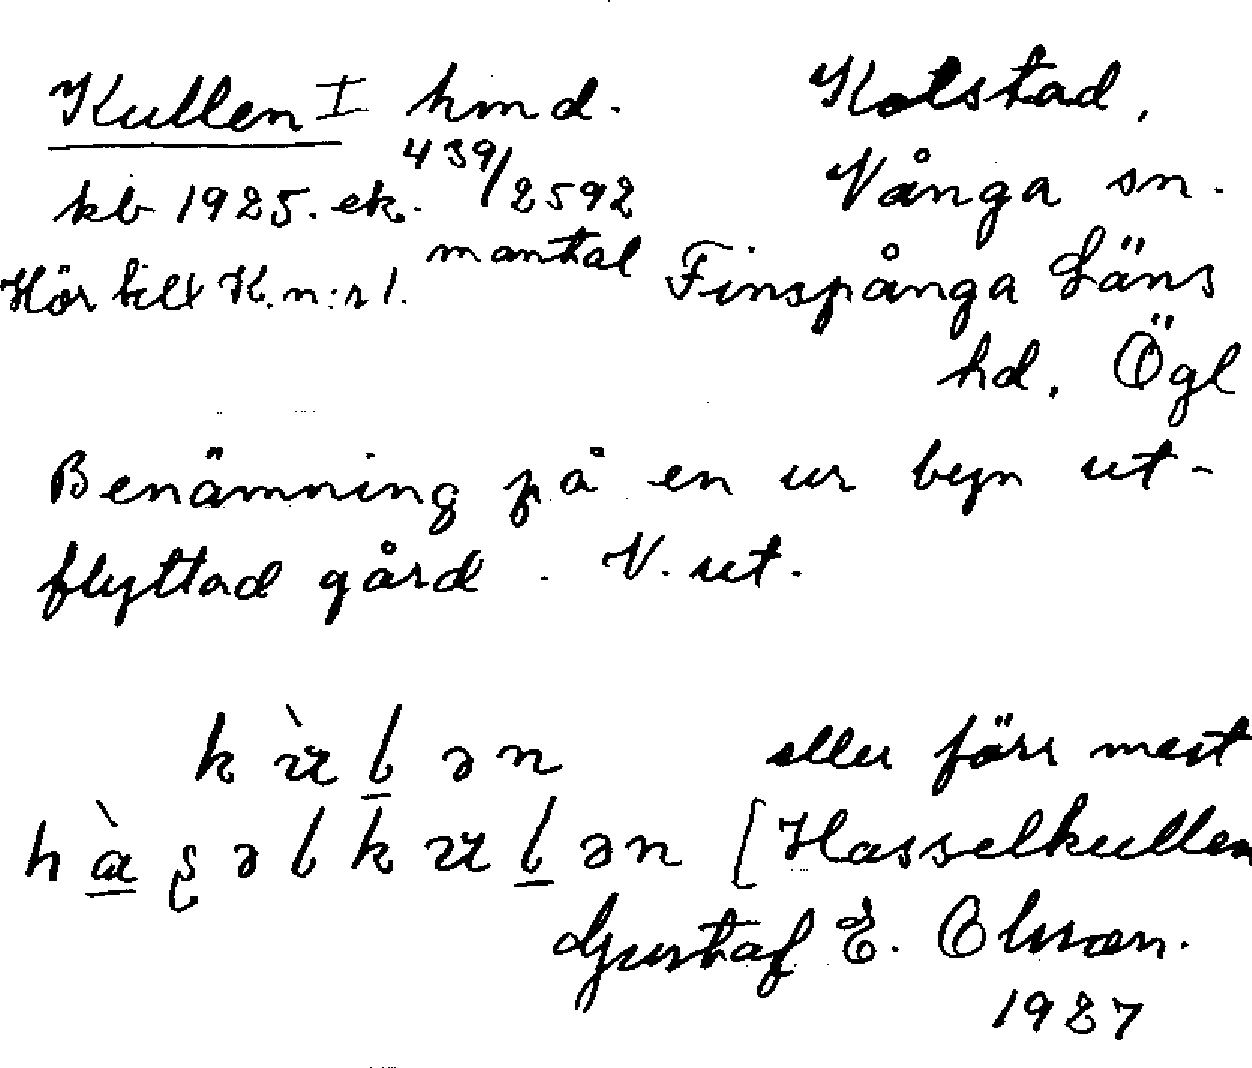 Kullen I hmd. Kolstad,
kb 1925. ek. 439/2592 Vånga sn.
mantal
Hör till K. n:r 1. Finspånga Läns
hd. Ögl
Benämning på en ur byn ut-
flyttad gård. V. ut.
eller förr mest
[Hasselkullen
Gustaf E. Olsson.
1927